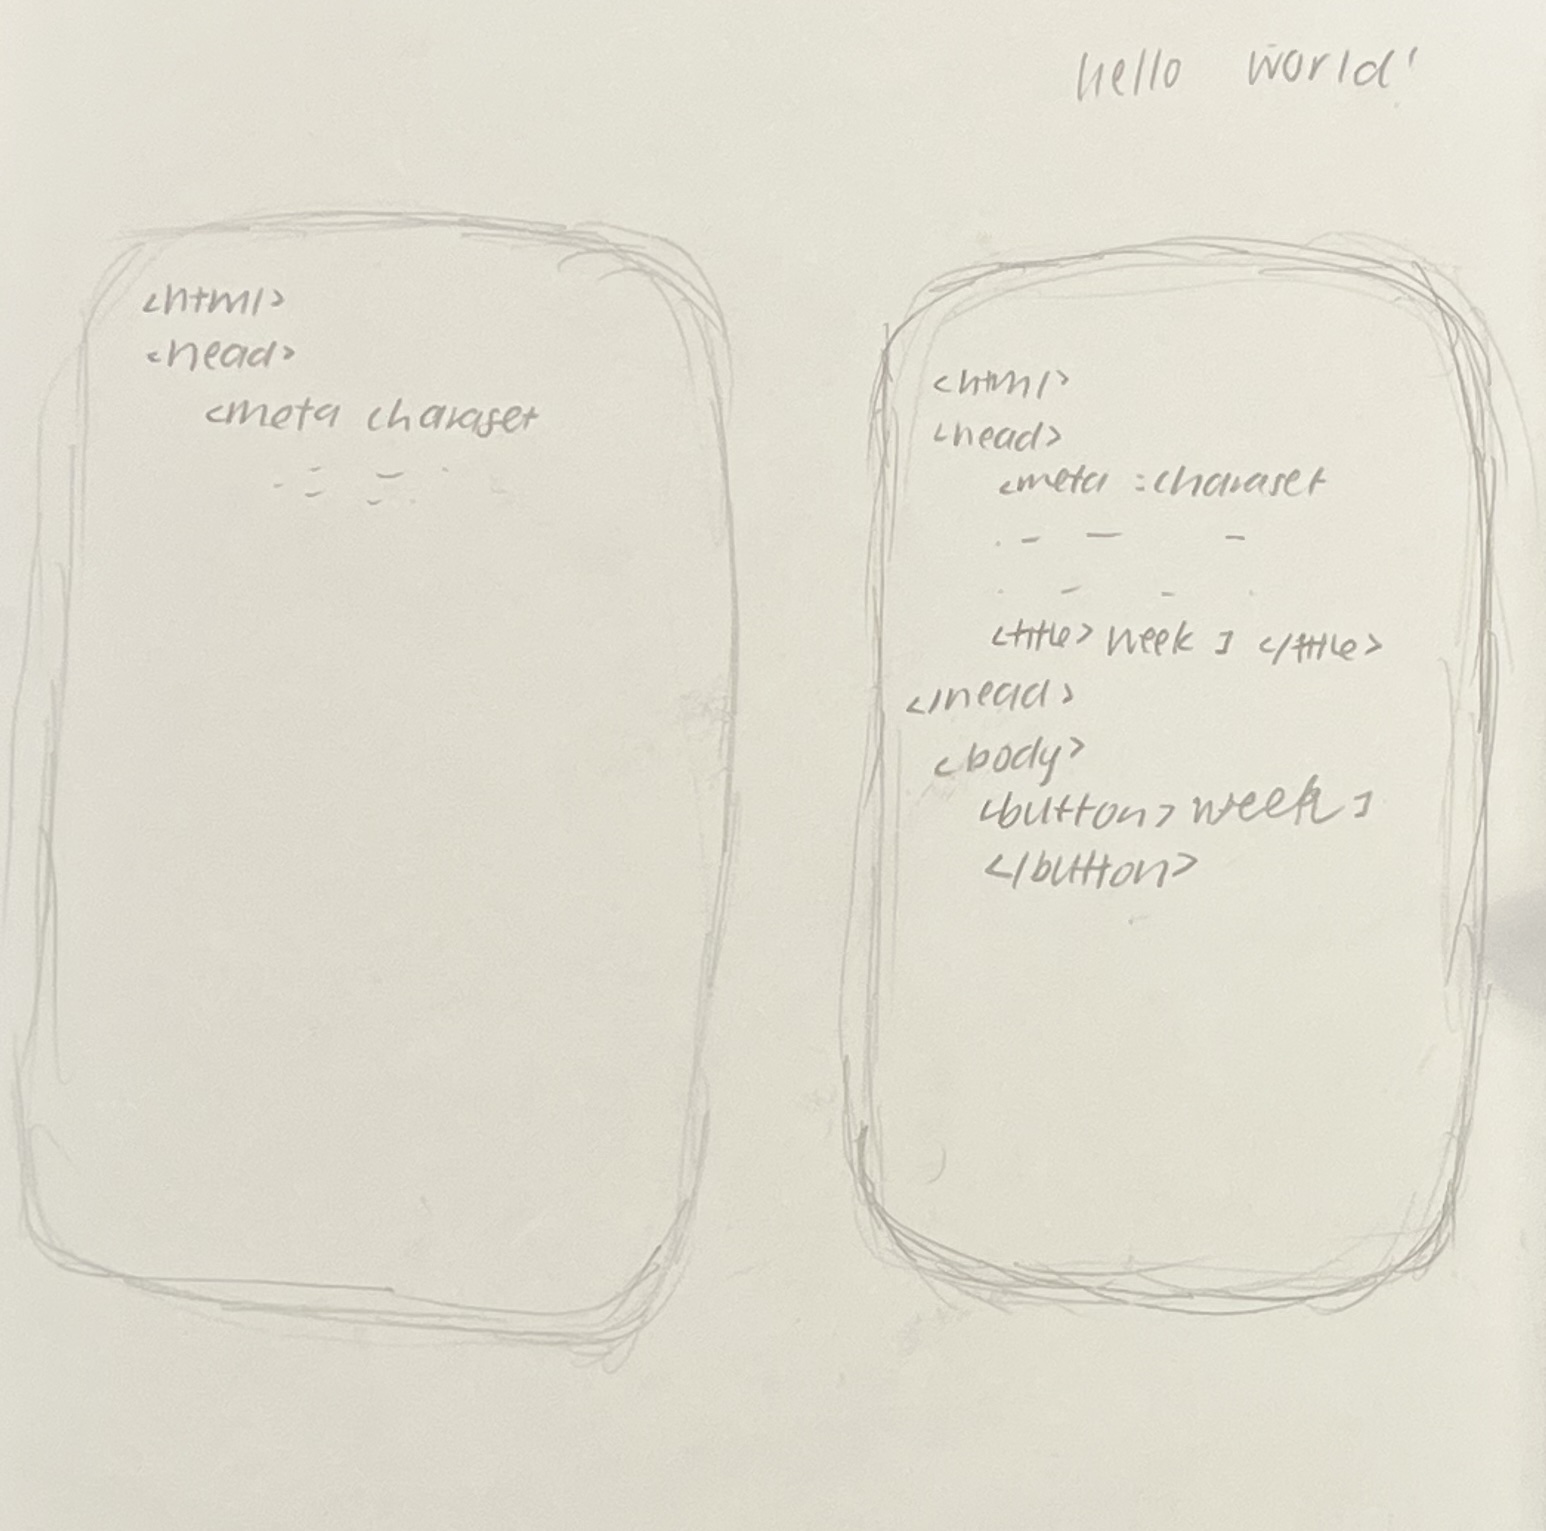 hello world!
<html>
<head>
<meta charaset
<html>
<head>
<meta :charaset
<title> week 1 </title>
</head>
<body>
<button> week 1
</button>